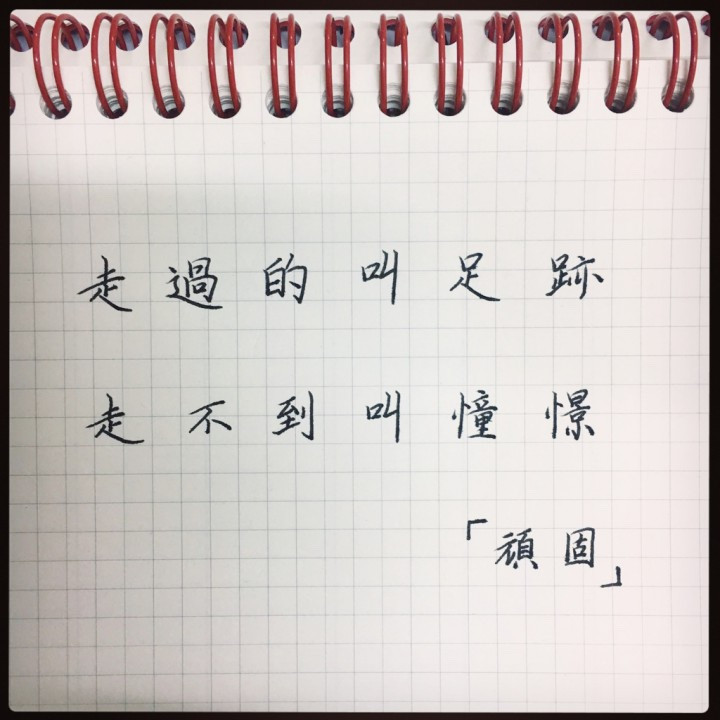 走過的叫足跡
走不到叫憧憬
「頑固」